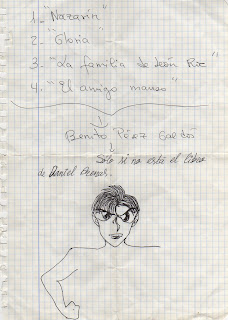 1- "Nazarín"
2- "Gloria"
3- "La familia de León Roc"
4- "El amigo manso"
Benito Pérez Galdós
Sólo si no está el libro
de Daniel